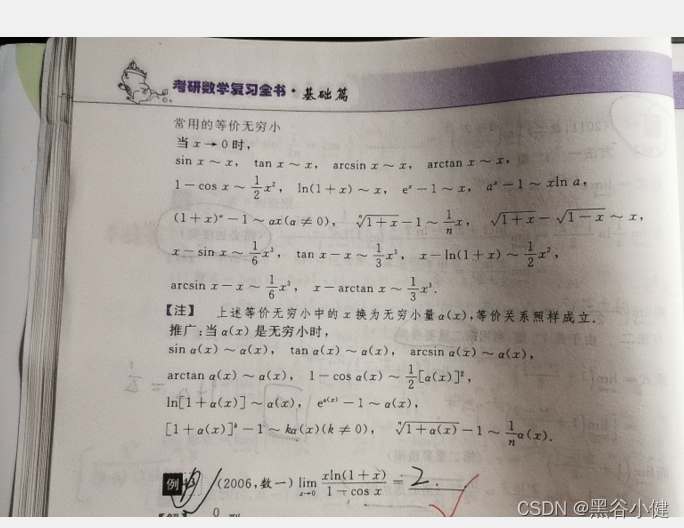 考研数学复习全书·基础篇
常用的等价无穷小
当 x → 0 时,
sin x ~ x, tan x ~ x, arcsin x ~ x, arctan x ~ x,
1 − cos x ~ 1/2 x², ln(1 + x) ~ x, eˣ − 1 ~ x, aˣ − 1 ~ xln a,
(1 + x)^α − 1 ~ αx(α ≠ 0), ⁿ√(1 + x) − 1 ~ 1/n x, √(1 + x) − √(1 − x) ~ x,
x − sin x ~ 1/6 x³, tan x − x ~ 1/3 x³, x − ln(1 + x) ~ 1/2 x²,
arcsin x − x ~ 1/6 x³, x − arctan x ~ 1/3 x³.
【注】 上述等价无穷小中的 x 换为无穷小量 α(x),等价关系照样成立.
推广:当 α(x) 是无穷小时,
sin α(x) ~ α(x), tan α(x) ~ α(x), arcsin α(x) ~ α(x),
arctan α(x) ~ α(x), 1 − cos α(x) ~ 1/2 [α(x)]²,
ln[1 + α(x)] ~ α(x), e^α(x) − 1 ~ α(x),
[1 + α(x)]^k − 1 ~ kα(x)(k ≠ 0), ⁿ√(1 + α(x)) − 1 ~ 1/n α(x).
例 (2006,数一) lim x→0 xln(1 + x)/(1 − cos x) = 2.
CSDN @黑谷小健